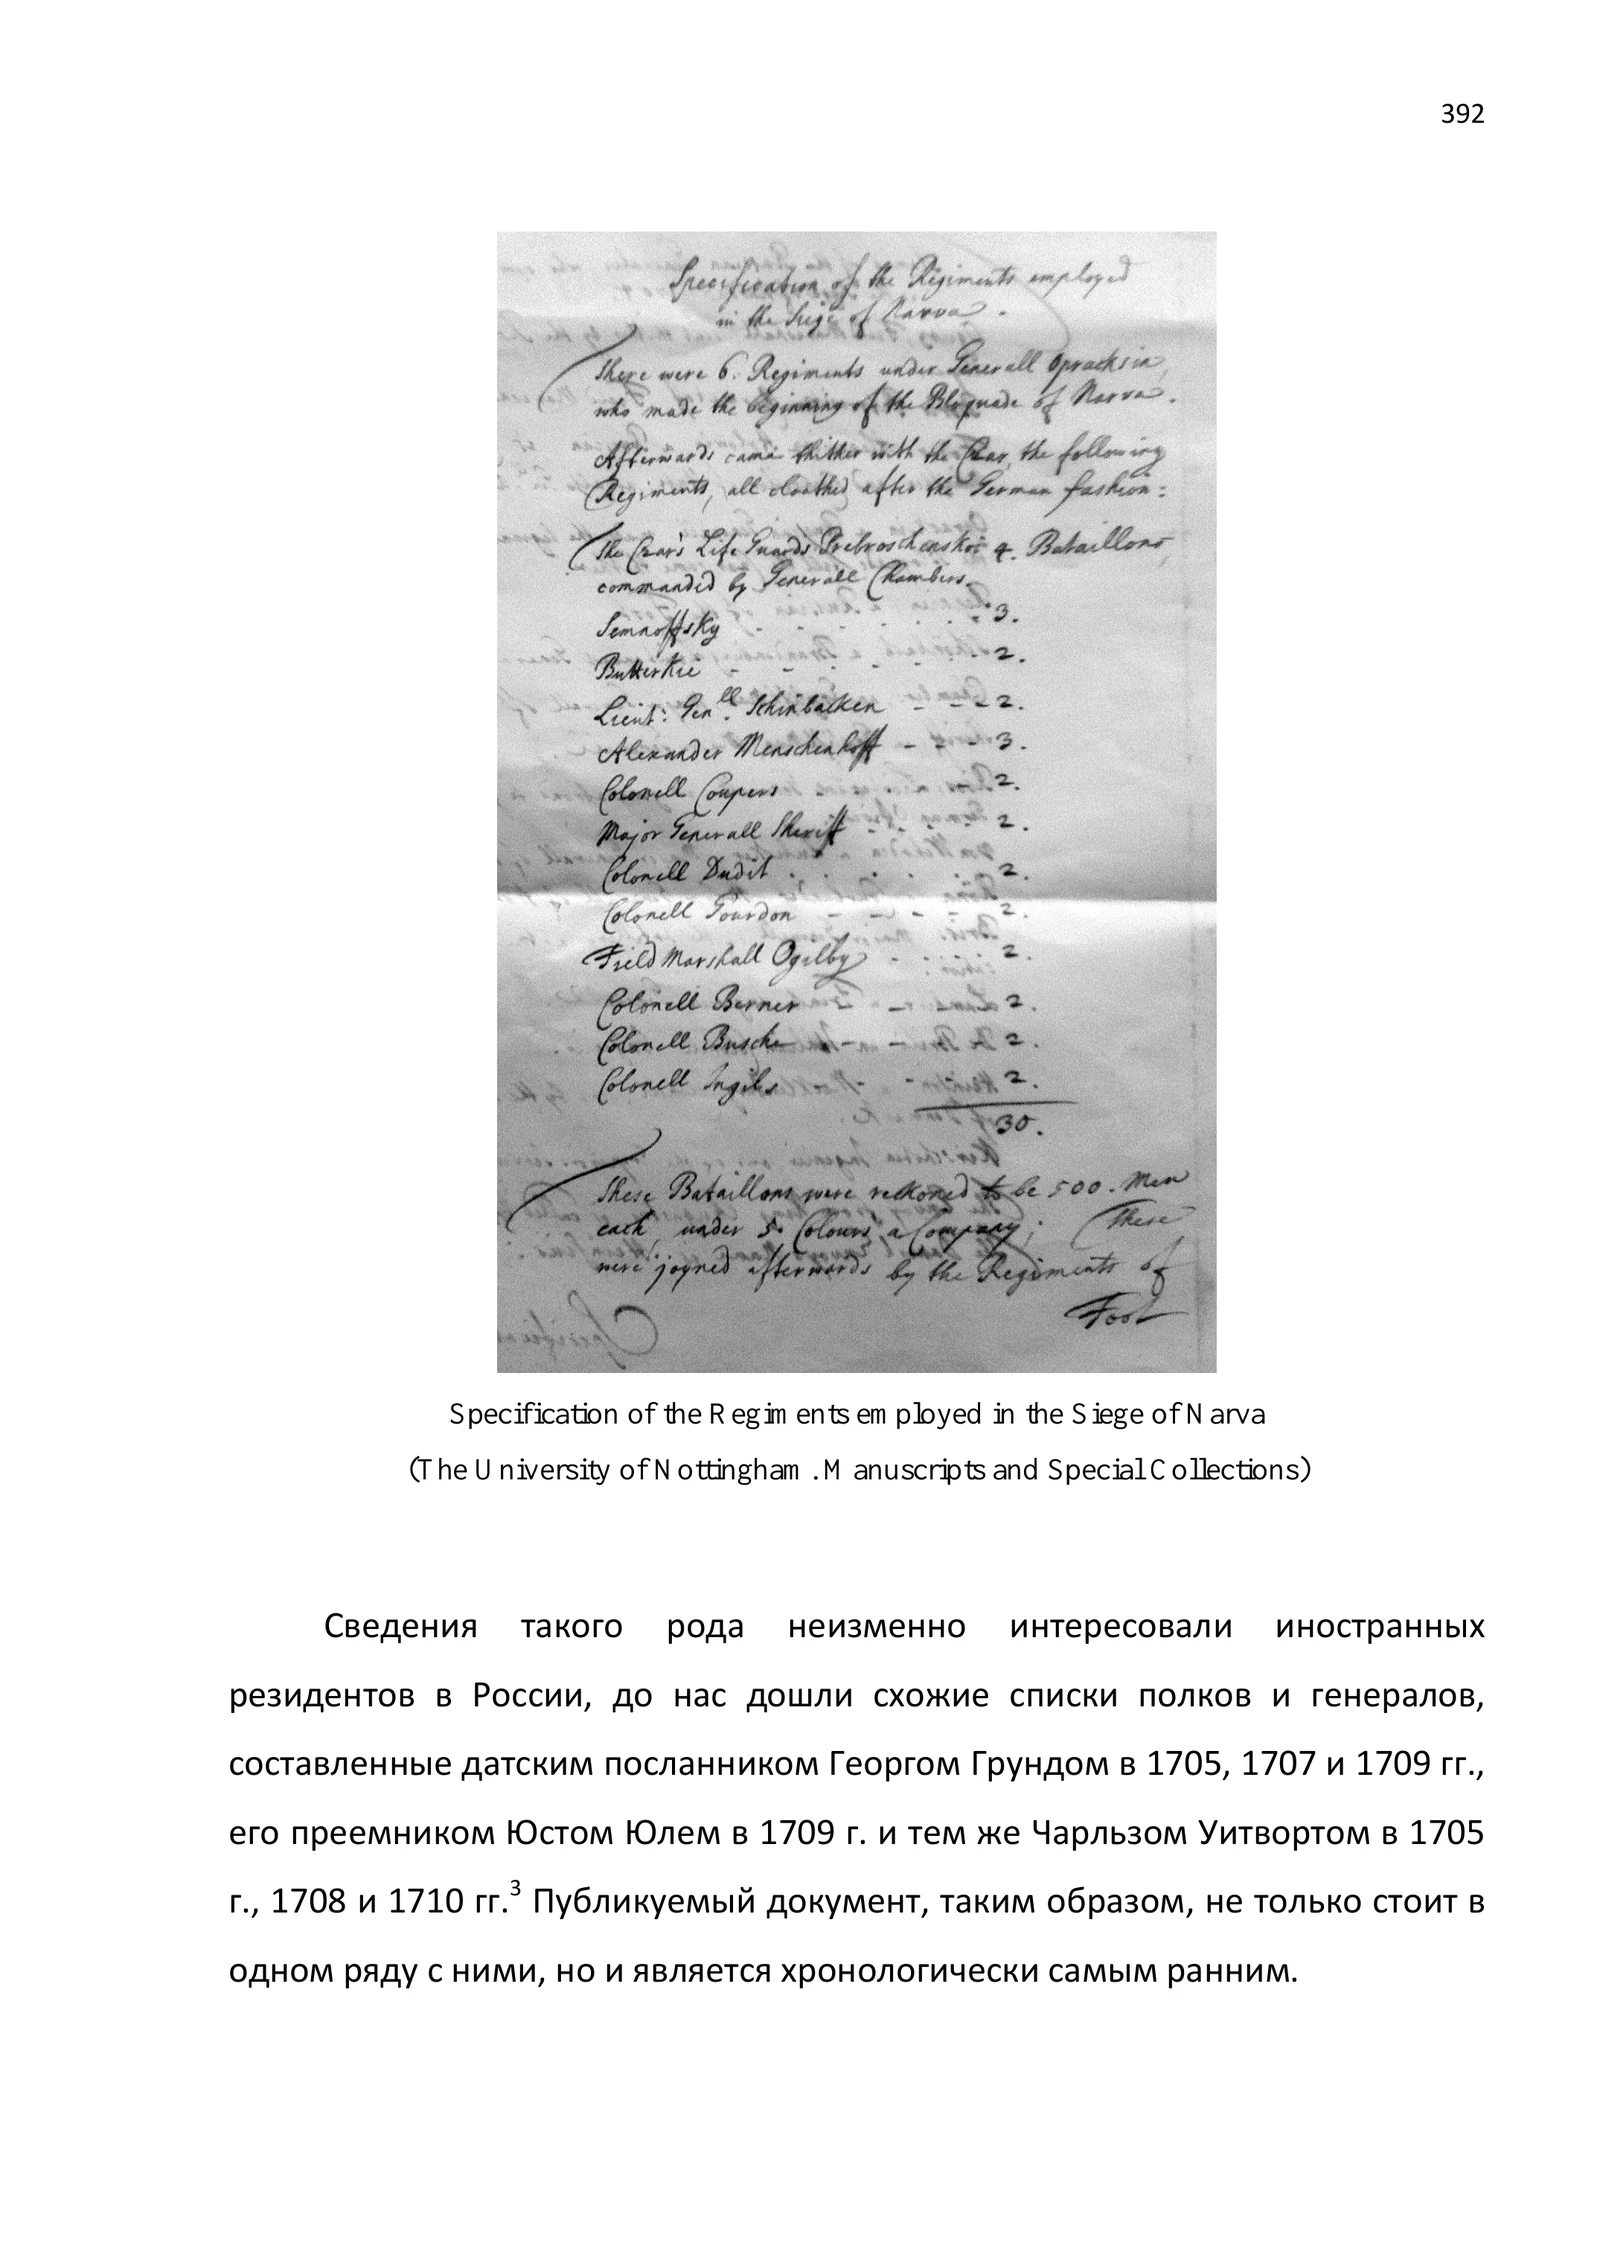 392
Specification of the Regiments employed
in the Siege of Narva.
There were 6. Regiments under Generall Opracksin,
who made the beginning of the Bloquade of Narva.
Afterwards came thither with the Czar, the following
Regiments, all cloathed after the German fashion:
The Czar's Life Guards Prebroschenskoi 4. Bataillons,
commanded by Generall Chambers.
Semnoffsky - - - - - - 3.
Butterkie - - - - - 2.
Lieut: Genll. Schinbacken - - - 2.
Alexander Menschenkoff - - - 3.
Colonell Coupers - - 2.
Major Generall Sheriff - - - - 2.
Colonell Dudit . . . . . 2.
Colonell Gourdon - - - - 2.
Field Marshall Ogilby - - - - 2.
Colonell Berner - - - 2.
Colonell Busche - - - - 2.
Colonell Ingils - - - 2.
30.
These Bataillons were reckoned to be 500. Men
each, under 5. Colours a Company; These
were joyned afterwards by the Regiments of
Foot
Specification of the Regiments employed in the Siege of Narva
(The University of Nottingham. Manuscripts and Special Collections)
Сведения такого рода неизменно интересовали иностранных
резидентов в России, до нас дошли схожие списки полков и генералов,
составленные датским посланником Георгом Грундом в 1705, 1707 и 1709 гг.,
его преемником Юстом Юлем в 1709 г. и тем же Чарльзом Уитвортом в 1705
г., 1708 и 1710 гг.3 Публикуемый документ, таким образом, не только стоит в
одном ряду с ними, но и является хронологически самым ранним.